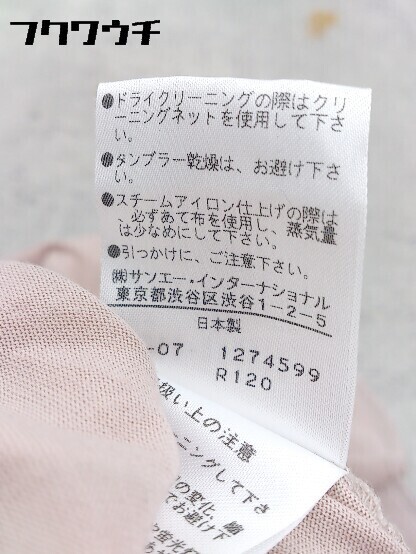 フクワウチ
●ドライクリーニングの際はクリ
ーニングネットを使用して下さ
い。
●タンブラー乾燥は、お避け下さ
い。
●スチームアイロン仕上げの際は
、必ずあて布を使用し、蒸気量
は少なめにして下さい。
●引っかけに、ご注意下さい。
㈱サンエー・インターナショナル
東京都渋谷区渋谷1-2-5
日本製
-07 1274599
R120
扱い上の注意
ーニングして下さ
の変化、縮
お避け下